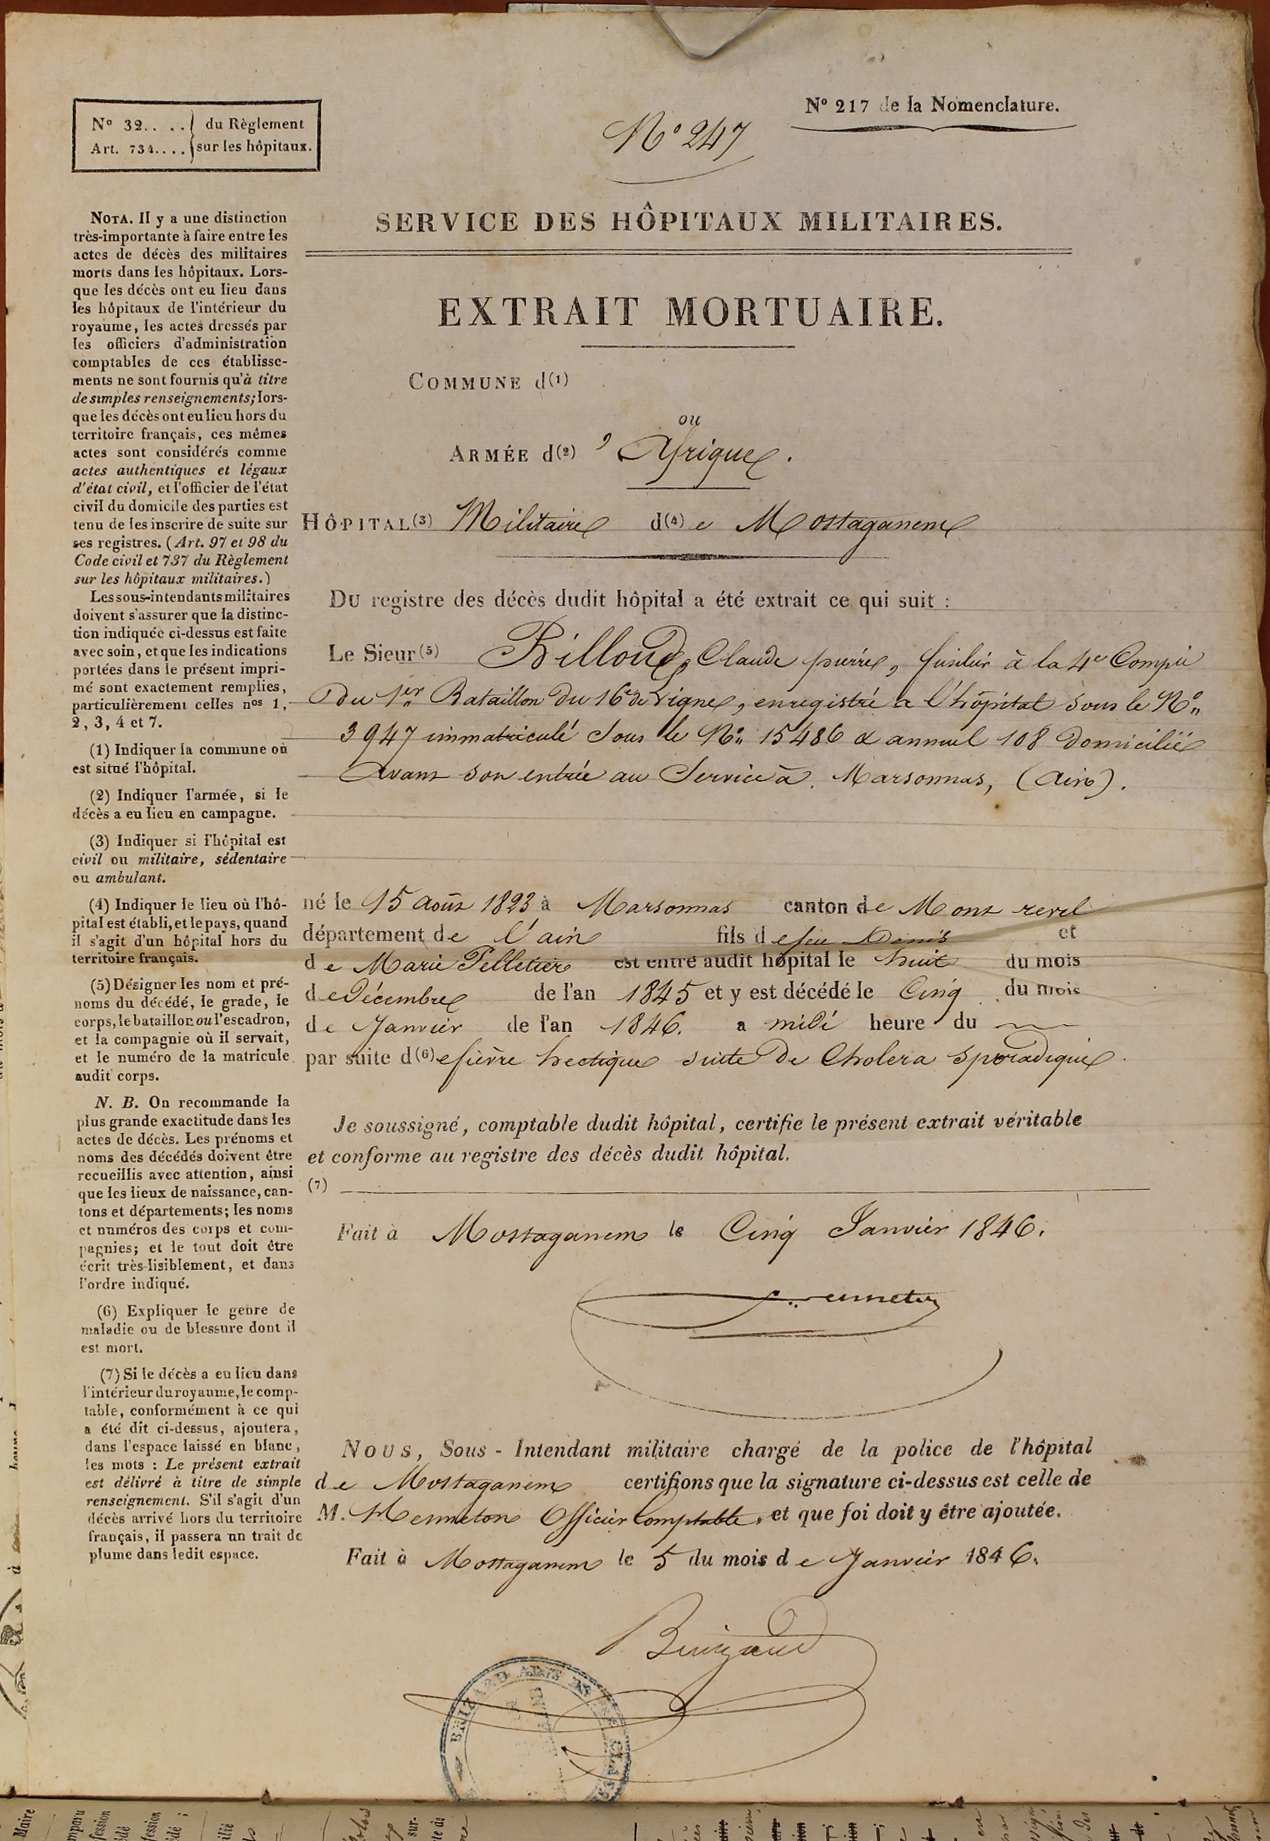 N° 32.... du Règlement
Art. 734.... sur les hôpitaux.
N° 217 de la Nomenclature.
N° 247
SERVICE DES HÔPITAUX MILITAIRES.
EXTRAIT MORTUAIRE.
COMMUNE d(1)
ou
ARMÉE d(2) ' Afrique.
HÔPITAL(3) Militaire d(4) e Mostaganem
DU registre des décès dudit hôpital a été extrait ce qui suit :
Le Sieur(5) Billoud, Claude pierre, fusilier à la 4e Compie
Du 1er Bataillon du 16e de Ligne, enregistré a l'hôpital sous le N°
3947 immatriculé sous le N° 15486 & annuel 108 Domicilié
Avant son entrée au Service à Marsonnas, (Ain).
né le 15 Août 1823 à Marsonnas canton de Mont revel
département de l'ain fils d e feu Denis et
de Marie Pelletier est entré audit hôpital le huit du mois
de Décembre de l'an 1845 et y est décédé le Cinq du mois
de Janvier de l'an 1846. a midi heure du
par suite d(6) e fièvre hectique suite De Choléra sporadique.
Je soussigné, comptable dudit hôpital, certifie le présent extrait véritable
et conforme au registre des décès dudit hôpital.
(7)
Fait à Mostaganem le Cinq Janvier 1846.
NOUS, Sous-Intendant militaire chargé de la police de l'hôpital
de Mostaganem certifions que la signature ci-dessus est celle de
M. Menneton Officier Comptable, et que foi doit y être ajoutée.
Fait à Mostaganem le 5 du mois d e Janvier 1846.
NOTA. Il y a une distinction
très-importante à faire entre les
actes de décès des militaires
morts dans les hôpitaux. Lors-
que les décès ont eu lieu dans
les hôpitaux de l'intérieur du
royaume, les actes dressés par
les officiers d'administration
comptables de ces établisse-
ments ne sont fournis qu'à titre
de simples renseignements; lors-
que les décès ont eu lieu hors du
territoire français, ces mêmes
actes sont considérés comme
actes authentiques et légaux
d'état civil, et l'officier de l'état
civil du domicile des parties est
tenu de les inscrire de suite sur
ses registres. (Art. 97 et 98 du
Code civil et 737 du Règlement
sur les hôpitaux militaires.)
Les sous-intendants militaires
doivent s'assurer que la distinc-
tion indiquée ci-dessus est faite
avec soin, et que les indications
portées dans le présent impri-
mé sont exactement remplies,
particulièrement celles nos 1,
2, 3, 4 et 7.
(1) Indiquer la commune où
est situé l'hôpital.
(2) Indiquer l'armée, si le
décès a eu lieu en campagne.
(3) Indiquer si l'hôpital est
civil ou militaire, sédentaire
ou ambulant.
(4) Indiquer le lieu où l'hô-
pital est établi, et le pays, quand
il s'agit d'un hôpital hors du
territoire français.
(5) Désigner les nom et pré-
noms du décédé, le grade, le
corps, le bataillon ou l'escadron,
et la compagnie où il servait,
et le numéro de la matricule
audit corps.
N. B. On recommande la
plus grande exactitude dans les
actes de décès. Les prénoms et
noms des décédés doivent être
recueillis avec attention, ainsi
que les lieux de naissance, can-
tons et départements; les noms
et numéros des corps et com-
pagnies; et le tout doit être
écrit très-lisiblement, et dans
l'ordre indiqué.
(6) Expliquer le genre de
maladie ou de blessure dont il
est mort.
(7) Si le décès a eu lieu dans
l'intérieur du royaume, le comp-
table, conformément à ce qui
a été dit ci-dessus, ajoutera,
dans l'espace laissé en blanc,
les mots : Le présent extrait
est délivré à titre de simple
renseignement. S'il s'agit d'un
décès arrivé hors du territoire
français, il passera un trait de
plume dans ledit espace.